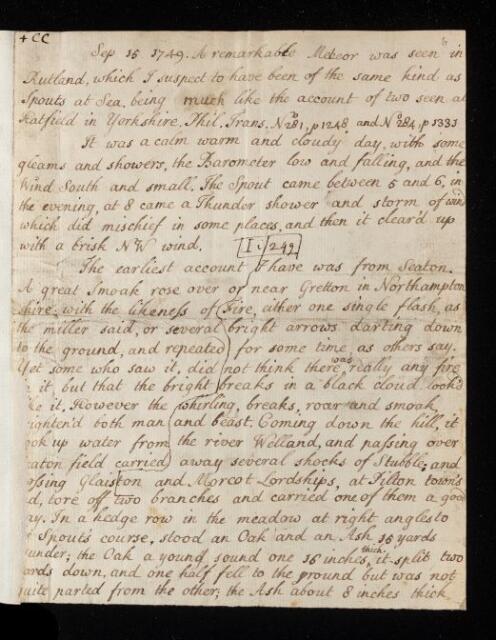 + CC
Sep 15 1749. A remarkable Meteor was seen in
Rutland, which I suspect to have been of the same kind as
Spouts at Sea, being much like the account of two seen at
Hatfield in Yorkshire. Phil. Trans. No 281, p 1248 and No 284, p 1331
It was a calm warm and cloudy day, with some
gleams and showers, the Barometer low and falling, and the
Wind South and small. The Spout came between 5 and 6, in
the evening, at 8 came a Thunder shower and storm of wind
which did mischief in some places, and then it clear'd up
with a brisk NW wind. 249
The earliest account I have was from Seaton.
A great Smoak rose over or near Gretton in Northampton
shire, with the likeness of Fire, either one single flash, as
the miller said, or several bright arrows darting down
to the ground, and repeated for some time, as others say.
Yet some who saw it, did not think there was really any fire
it, but that the bright breaks in a black cloud look'd
it. However the whirling, breaks, roar and smoak
frighten'd both man and beast. Coming down the hill, it
took up water from the river Welland, and passing over
Seaton field carried away several shocks of Stubble; and
crossing Glaiston and Morcot Lordships, at Pilton town's
tore off two branches and carried one of them a good
way. In a hedge row in the meadow at right angles to
Spouts course, stood an Oak and an Ash 15 yards
asunder; the Oak a young sound one 16 inches thick, it split two
yards down, and one half fell to the ground but was not
quite parted from the other; the Ash about 8 inches thick